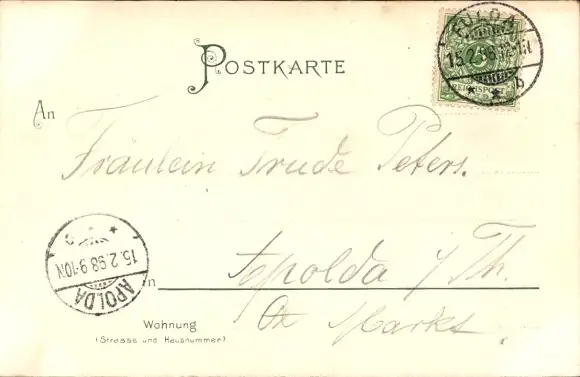 FULDA
15.2.98
REICHSPOST
POSTKARTE
An
Fräulein Trude Peters.
in Apolda i/Th.
APOLDA
15.2.98 9-10N
Wohnung
(Strasse und Hausnummer)
Markt.